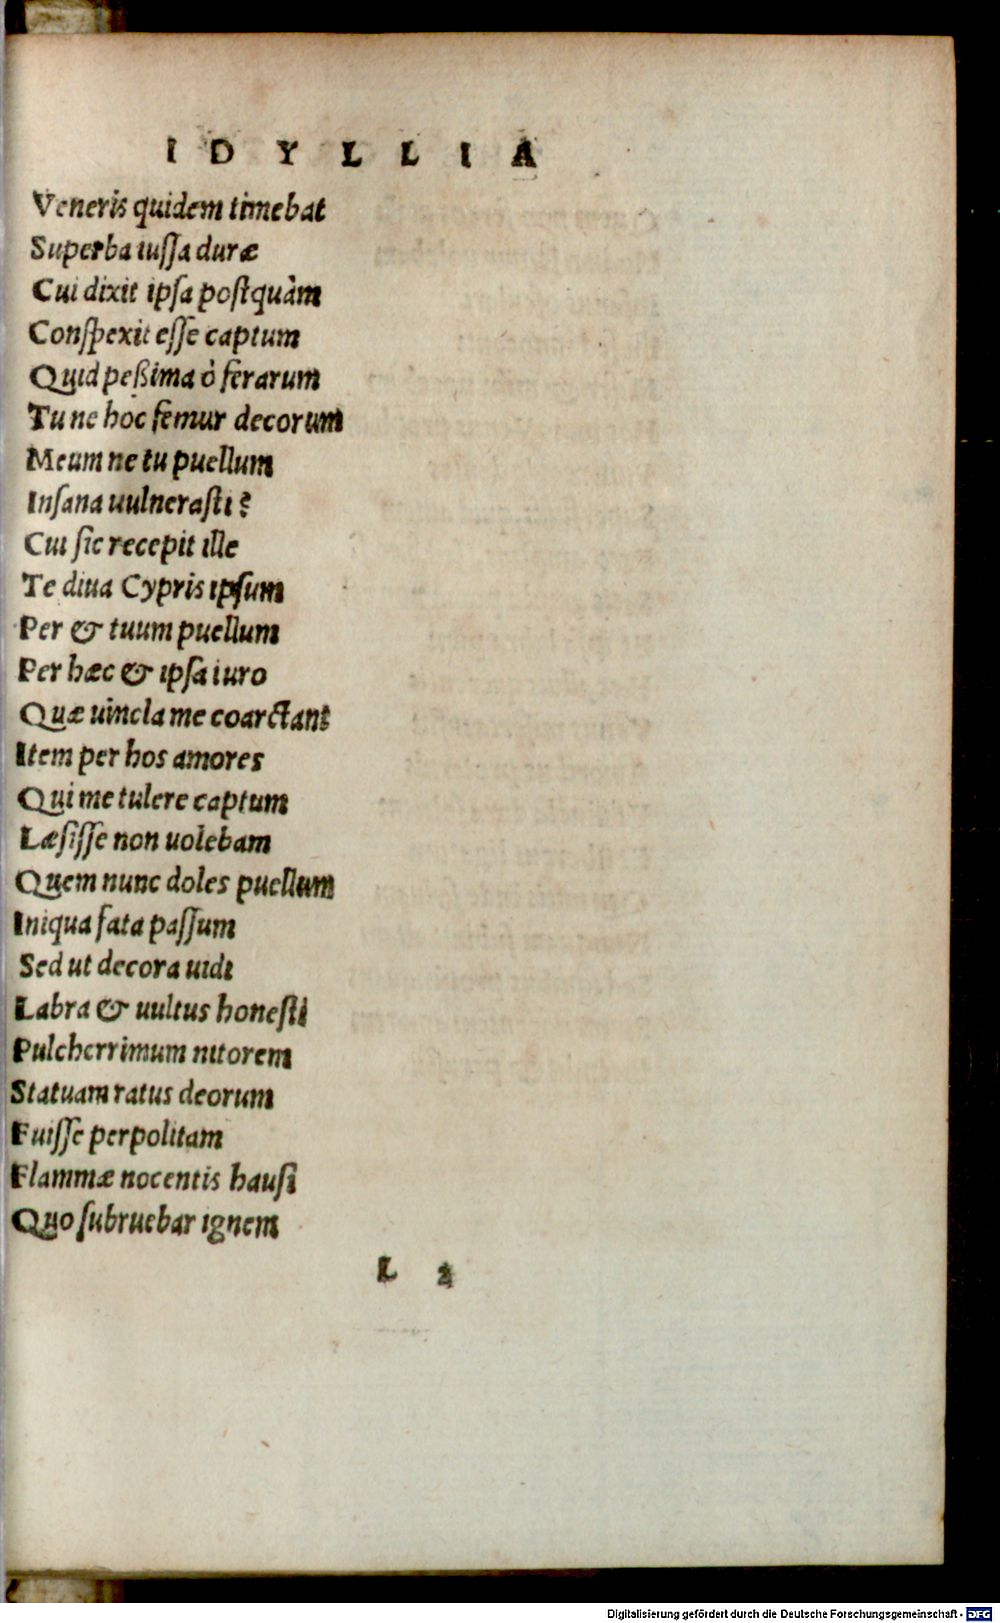 IDYLLIA
Veneris quidem timebat
Superba iussa duræ
Cui dixit ipsa postquàm
Conspexit esse captum
Quid peßima ò ferarum
Tu ne hoc femur decorum
Meum ne tu puellum
Insana uulnerasti?
Cui sic recepit ille
Te diua Cypris ipsum
Per & tuum puellum
Per hæc & ipsa iuro
Quæ uincla me coarctant
Item per hos amores
Qui me tulere captum
Læsisse non uolebam
Quem nunc doles puellum
Iniqua fata passum
Sed ut decora uidi
Labra & uultus honesti
Pulcherrimum nitorem
Statuam ratus deorum
Fuisse perpolitam
Flammæ nocentis hausi
Quo subruebar ignem
L 2
Digitalisierung gefördert durch die Deutsche Forschungsgemeinschaft - DFG